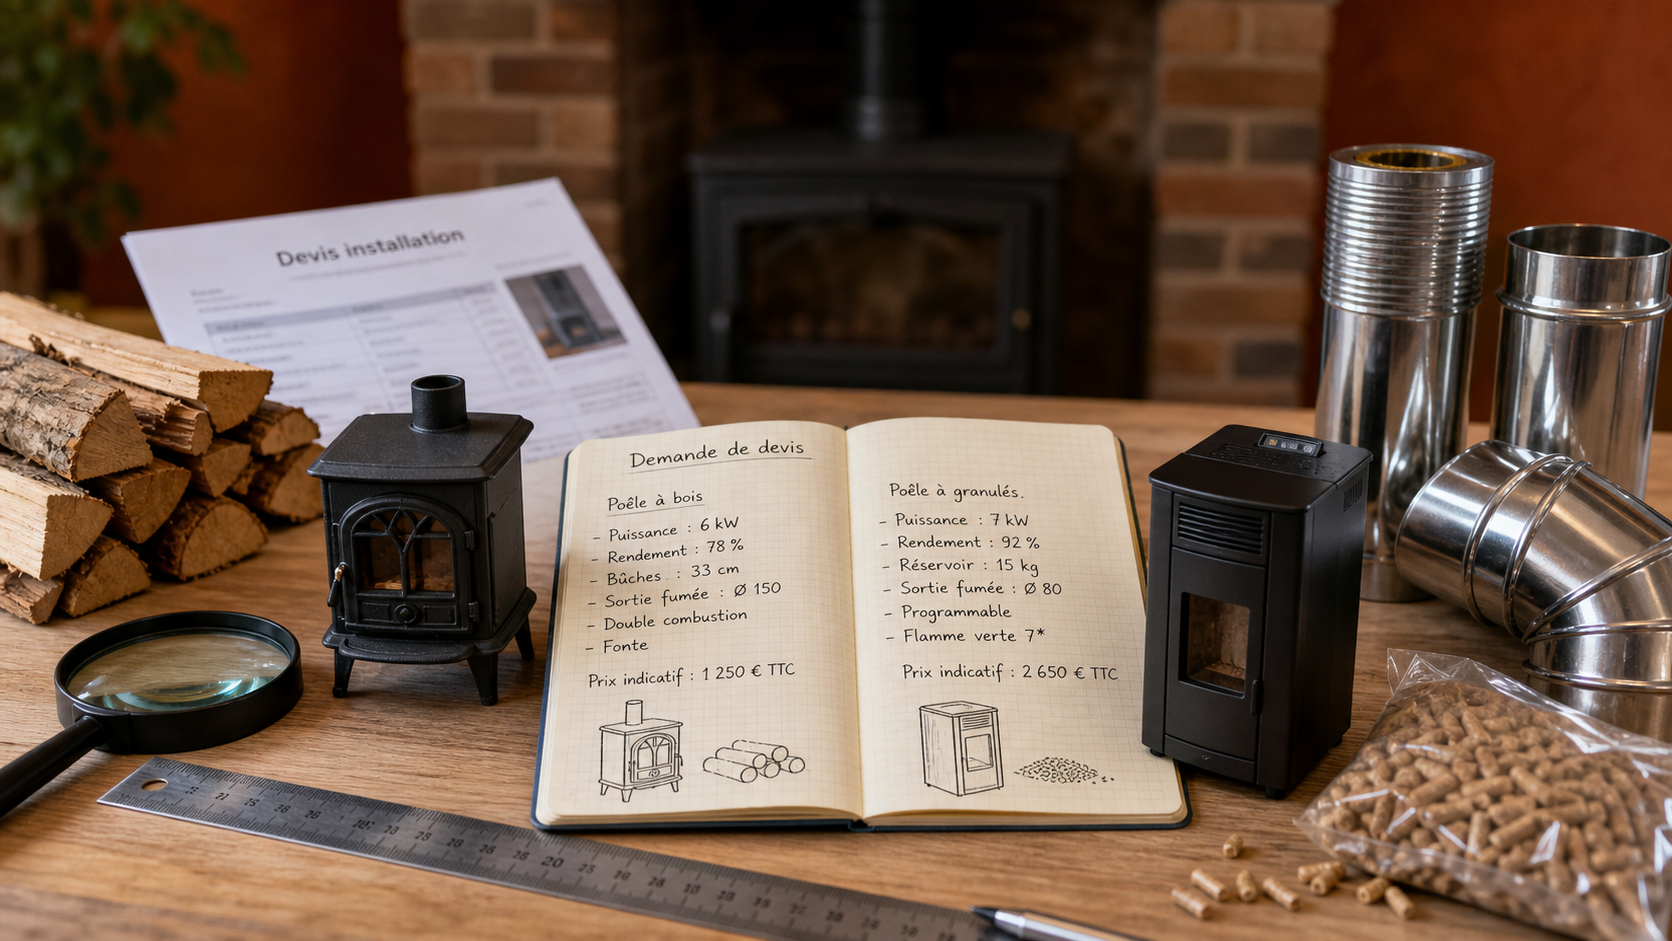 Devis installation
Demande de devis
Poêle à bois
- Puissance : 6 kW
- Rendement : 78 %
- Bûches : 33 cm
- Sortie fumée : Ø 150
- Double combustion
- Fonte
Prix indicatif : 1 250 € TTC
Poêle à granulés.
- Puissance : 7 kW
- Rendement : 92 %
- Réservoir : 15 kg
- Sortie fumée : Ø 80
- Programmable
- Flamme verte 7*
Prix indicatif : 2 650 € TTC
20